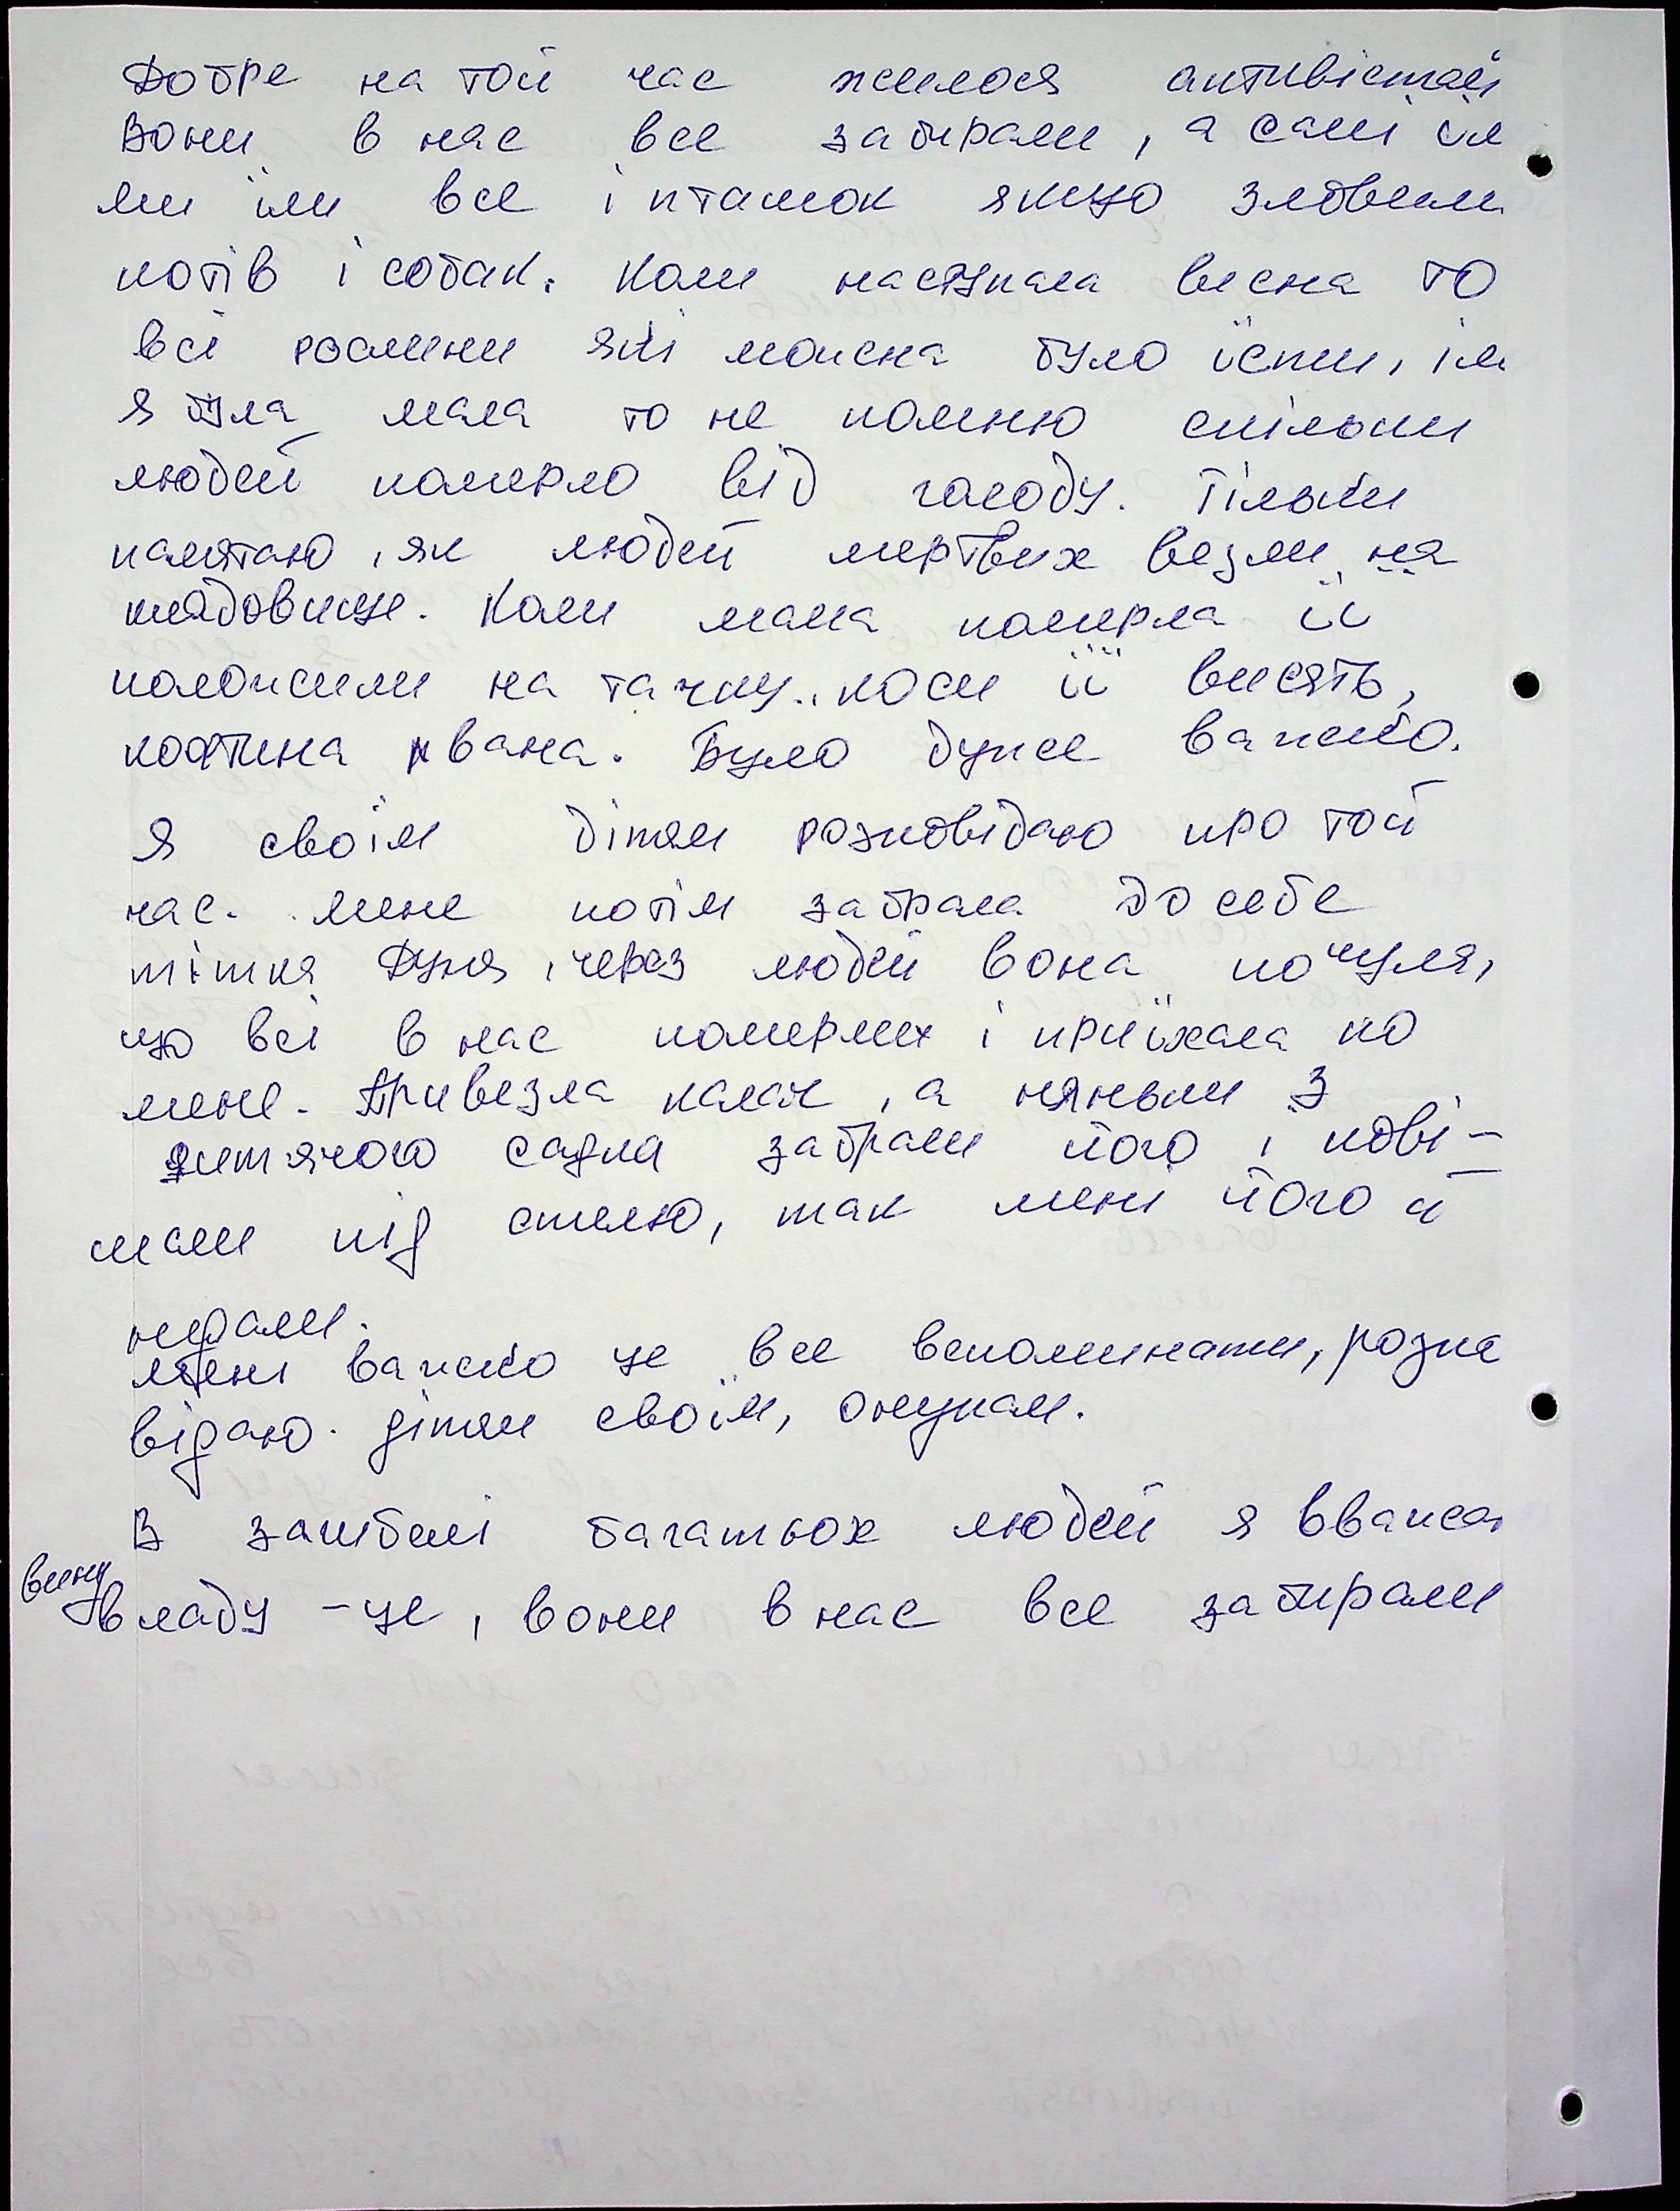 Добре на той час жилося активістам
Вони в нас все забирали, а самі їл
ми їли все і пташок якщо зловили
котів і собак. Коли наступала весна то
всі рослини які можна було їсти, їл
Я була мала то не помню скільки
людей померло від голоду. Тільки
памятаю, як людей мертвих везли на
кладовище. Коли мама померла її
положили на тачку, коси її висять,
кофтина рвана. Було дуже важко.
Я своїм дітям розповідаю про той
час. Мене потім забрала до себе
тітка Дуня, через людей вона почула,
що всі в нас померли і приїхала по
мене. Привезла калач, а няньки з
дитячого садка забрали його і пові-
шали під стелю, так мені його й
недали.
Мені важко це все вспоминати, розпо
відаю дітям своїм, онукам.
В загибелі багатьох людей я вважаю
вину
владу - це, вони в нас все забирали